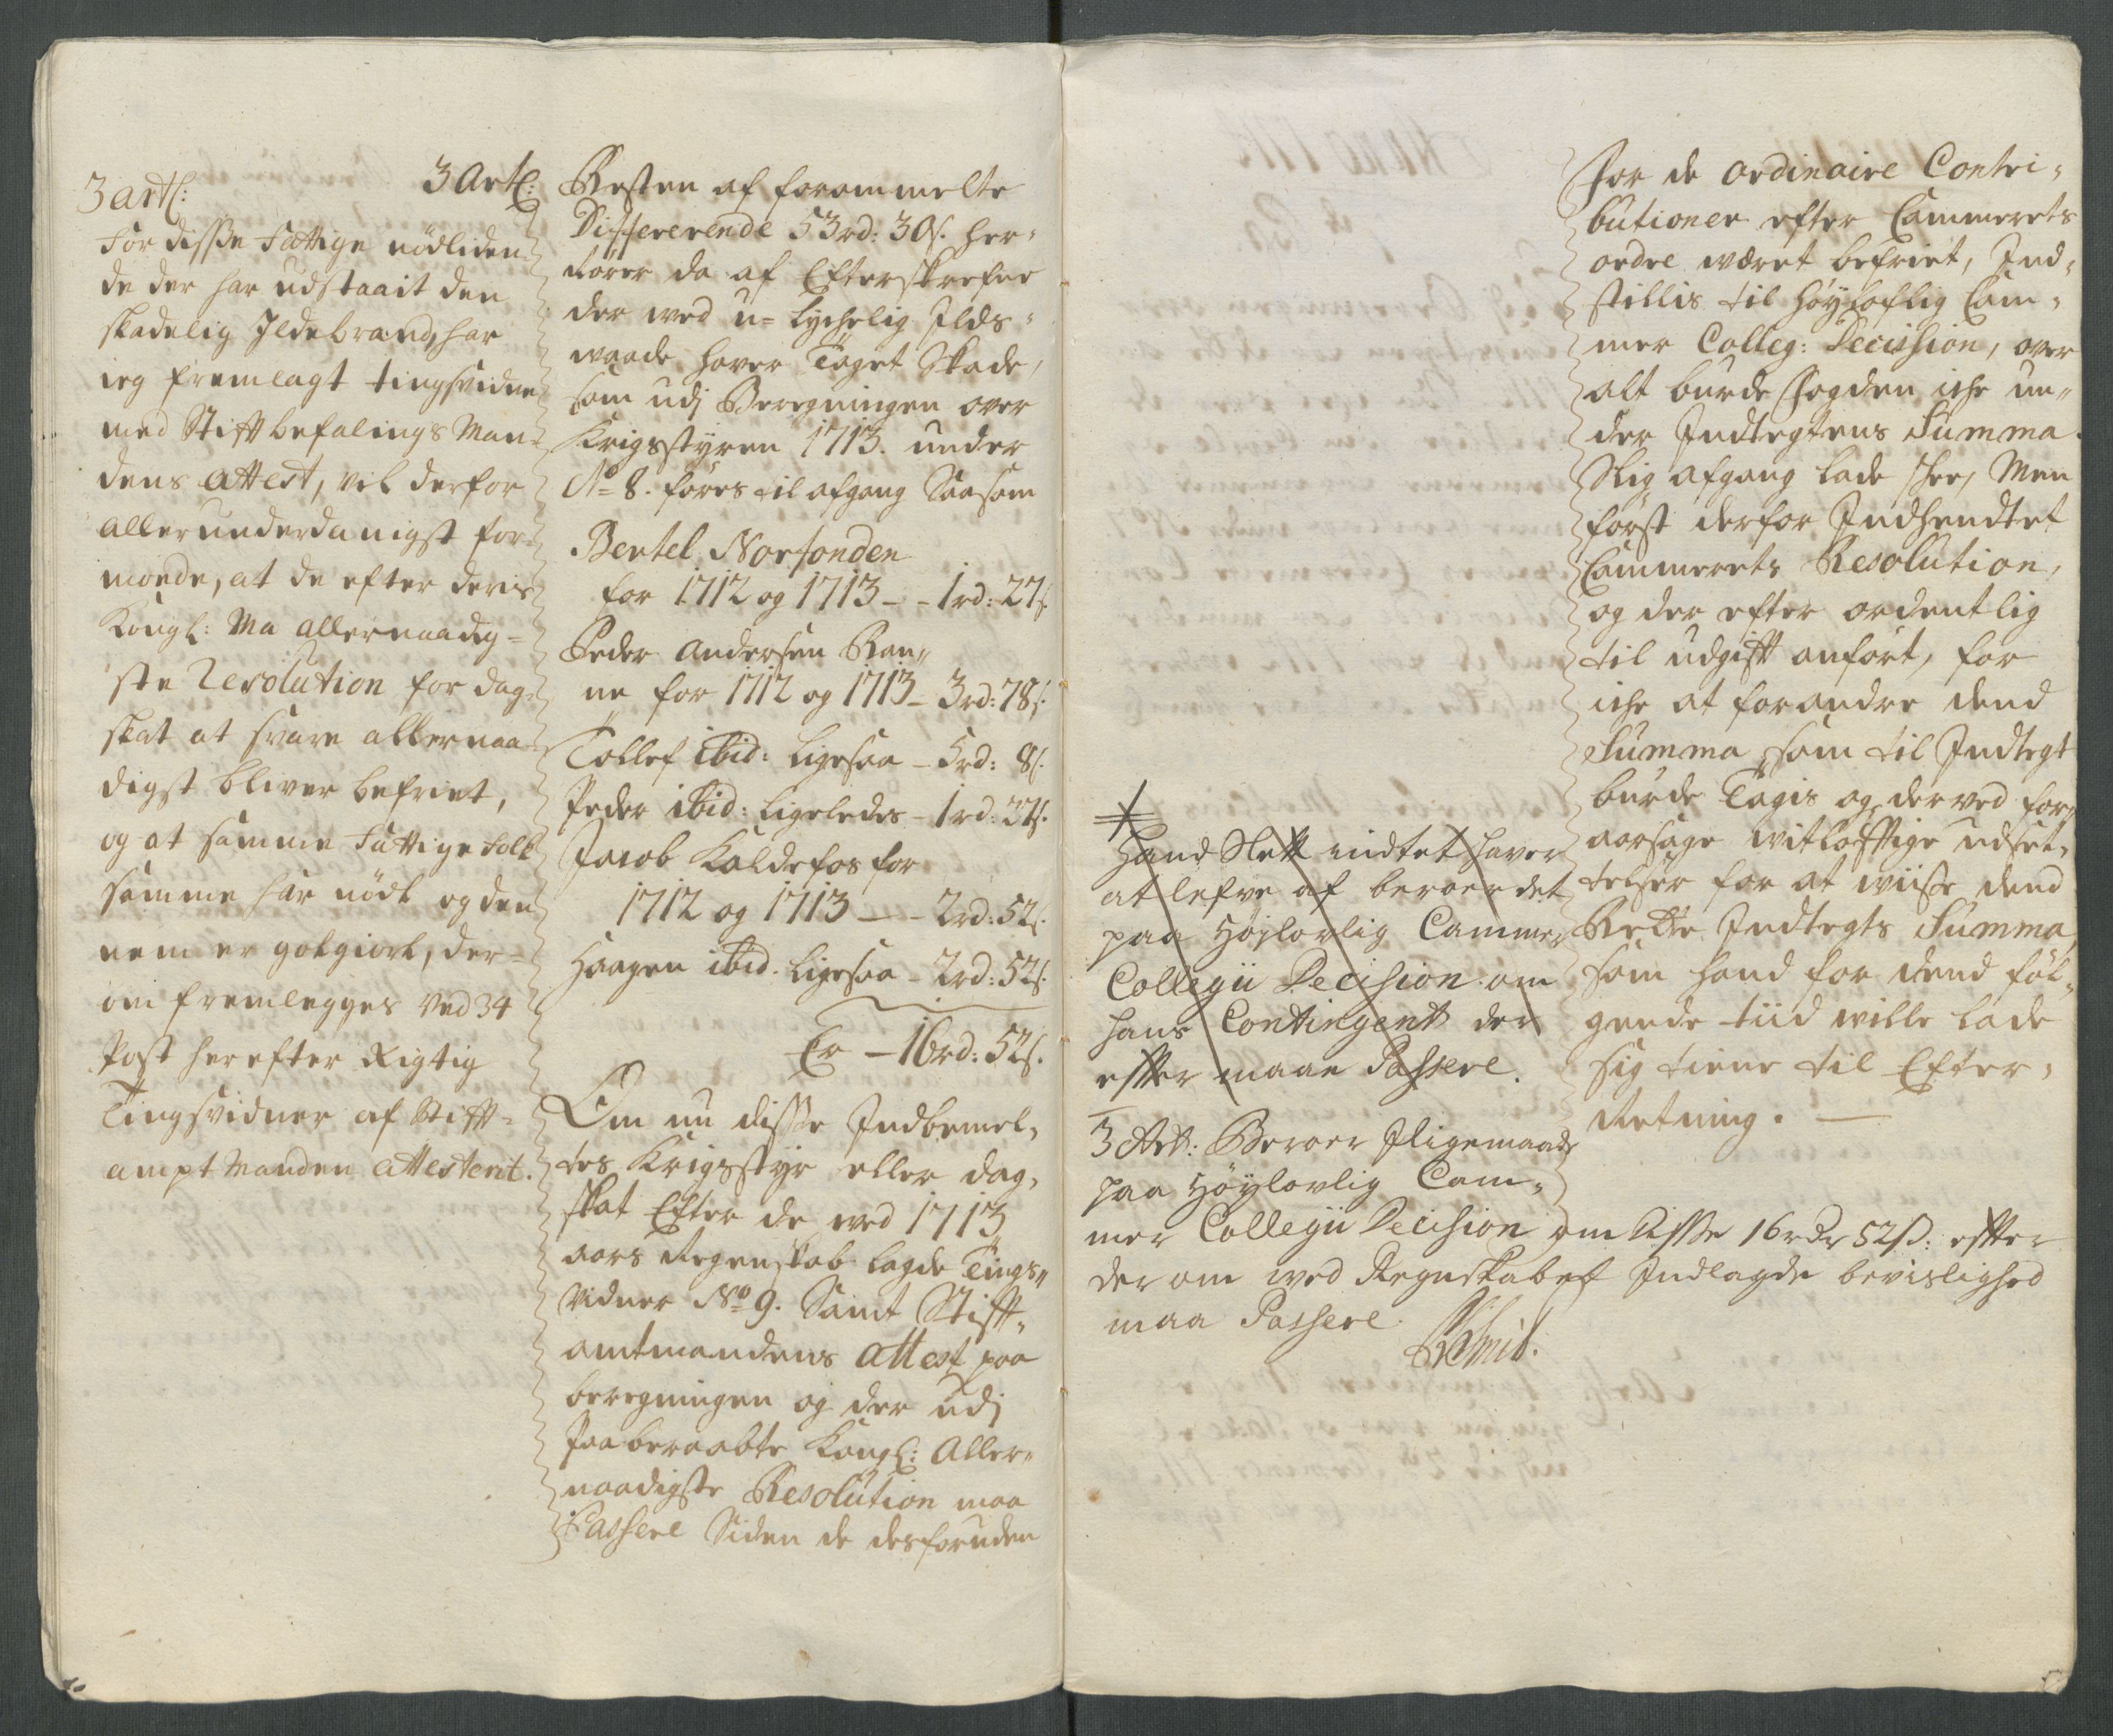 3 artl:
For disse Fattige nödliden-
de der har udstaait den
skadelig Ildebrand, har
ieg fremlagt tingsvidne
med Stiftbefalings Man-
dens attest, vil derfor
allerunderdanigst for-
mode, at de efter deris
Kongl: Ma allernaadig-
ste Resolution for dag-
skat at svare allernaa-
digst bliver befriet,
og at samme Fattige Folk
samme har nödt og den-
nem er gotgiort, der-
om fremlegges ved 34
Post herefter Rigtig
Tingsvidner af Stift-
ampt Manden attesterit.
3 Artl:
Resten af forommelte
Differerende 53rd: 30s. her-
rörer da af Efterskrefne
der med u-lychelig Ilds-
waade hafver Taget Skade,
som udj Beregningen over
Krigsstyren 1713. under
No 8. föres til afgang Saasom
Bertel Norsonden
for 1712 og 1713 - - 1rd: 27s.
Peder Andersen Ran-
ne for 1712 og 1713 - 3rd: 78s.
Tollef ibid: ligesaa - 5rd: 8s.
Peder ibid: ligeledes - 1rd: 27s.
Jacob Kaldefos for
1712 og 1713 - - 2rd: 52s.
Haagen ibid. ligesaa - 2rd: 52s.
Er - 16rd: 52s.
Om nu disse Indbemel-
tes Krigsstyr eller dag-
skat Efter de ved 1713
aars Regenskab lagde Tings-
vidner No 9. Samt Stift-
amtmandens attest paa
beregningen og der udj
Paaberaabte Kongl: Aller-
naadigste Resolution maa
Passere Siden de desforuden
For de ordinaire Contri-
butioner efter Cammerets
ordre været befriet, Ind-
stillis til Höyloflig Cam-
mer Colleg: Decission, over
alt burde Fogden iche un-
der Indtegtens Summa
Slig afgang lade skee, Men
först derfor Indhendtet
Cammerets Resolution,
og der efter ordentlig
til udgift anfört, for
iche at forandre dend
Summa som til Indtegt
burde Tagis og derved for-
aarsage vitløftige udset-
telser for at wiisse dend
Rette Indtegts Summa,
som hand for dend föl-
gende tiid wille lade
sig tiene til Efter-
Retning.
Hand Slett indtet hafver
at lefve af beroer det
paa Höylovlig Cammer
Collegii Decision om
hans Contingent der
efter maae Passere.
3 Art: Beroer Iligemaade
paa Höylovlig Cam-
mer Collegii Decision om disse 16 rdr 52 s: efter
der om ved Regnskabet Indlagde bevislighed
maa Passere.